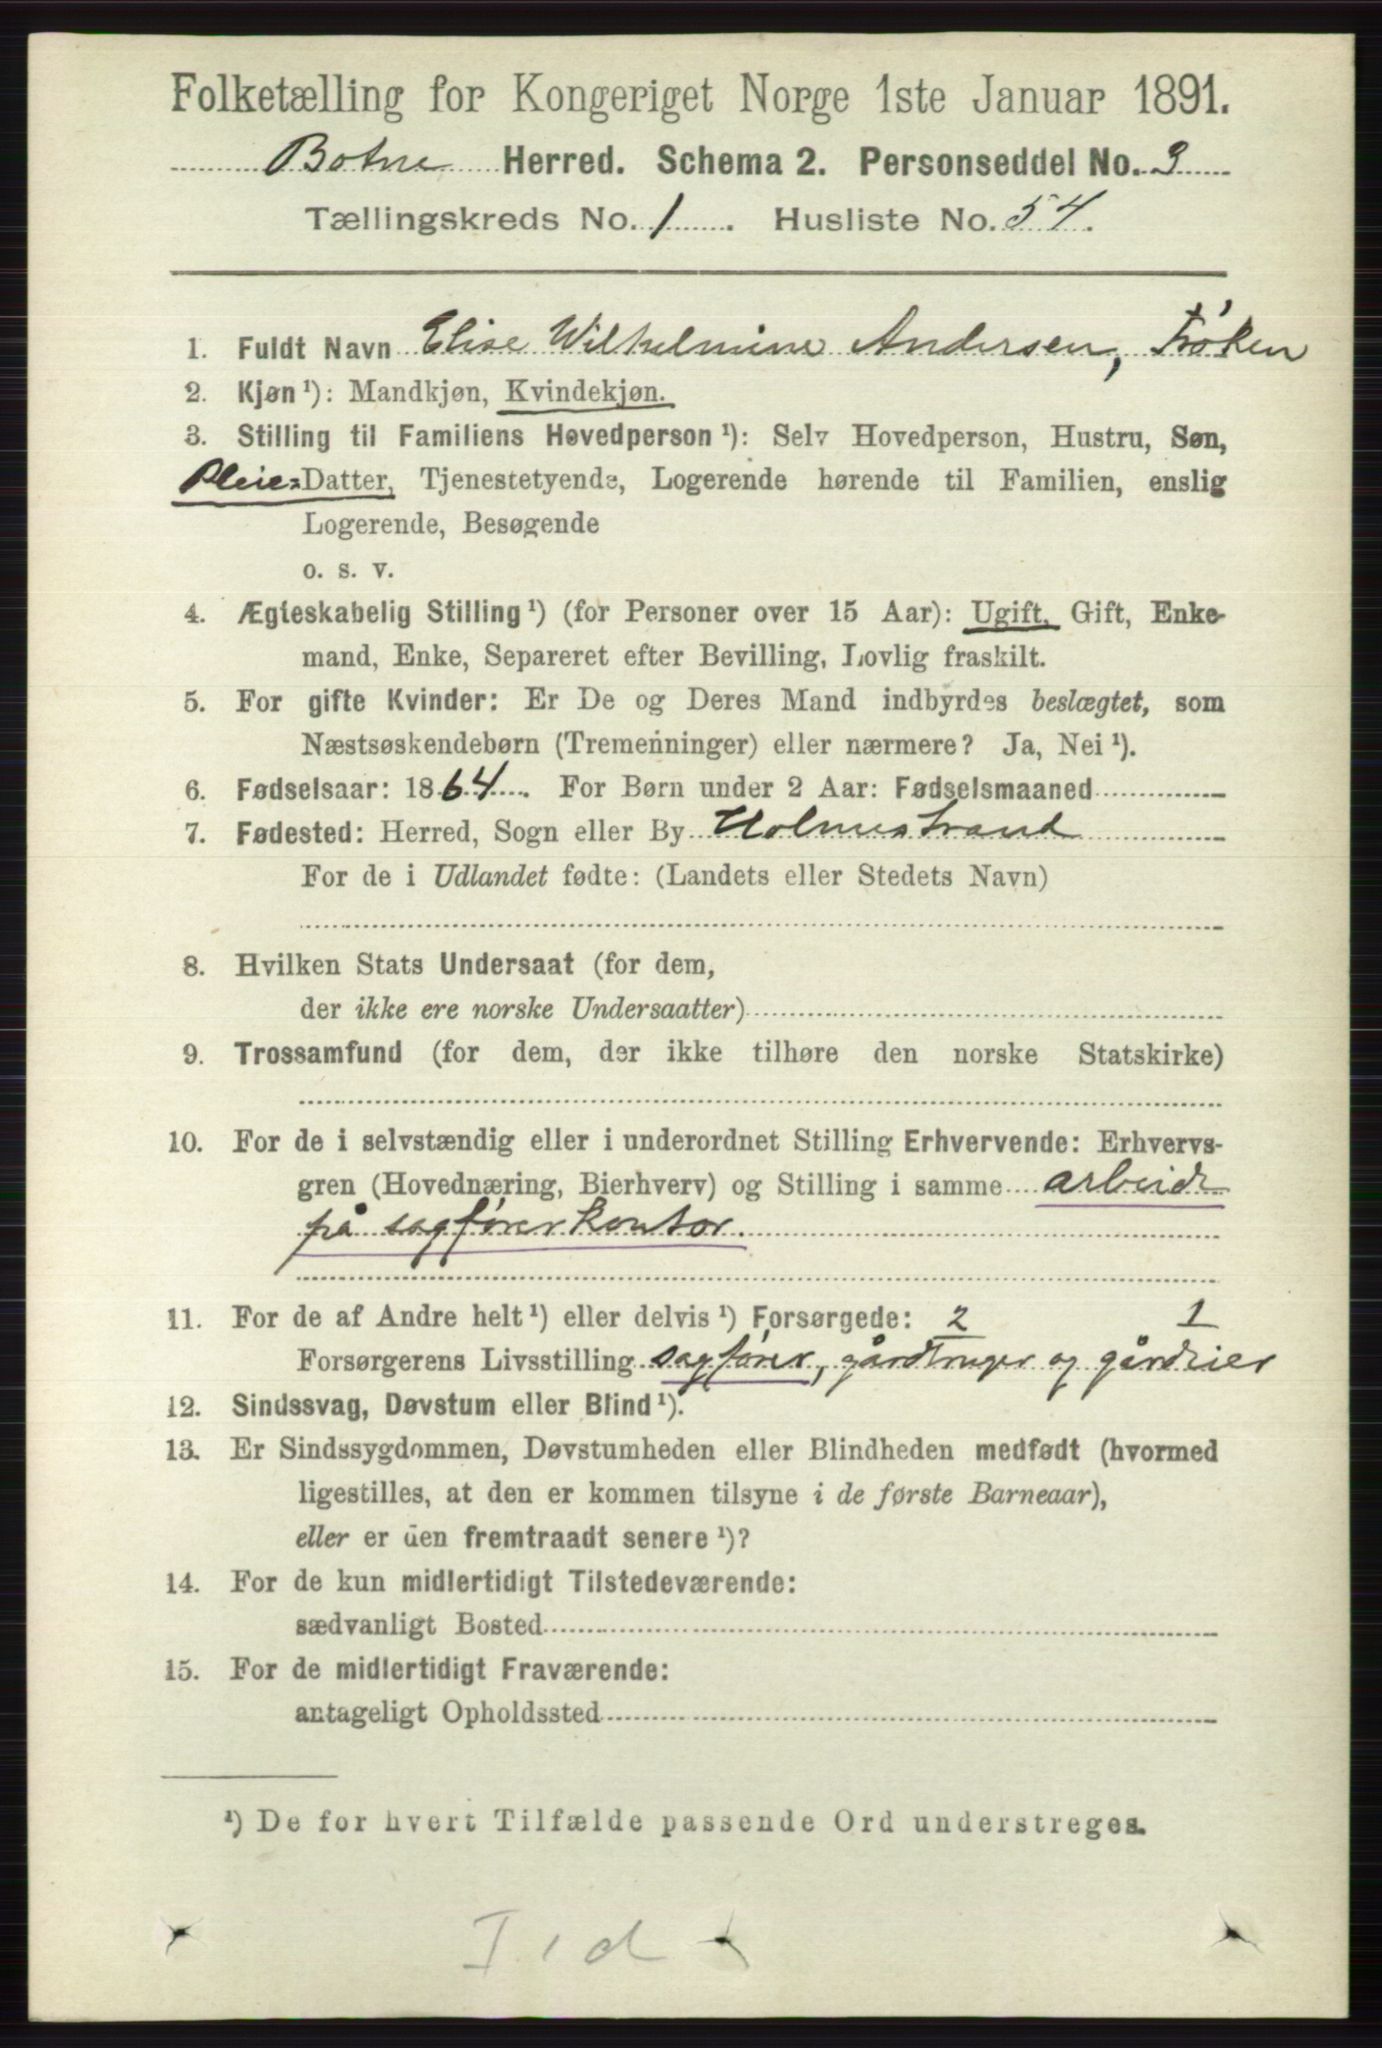 Folketælling for Kongeriget Norge 1ste Januar 1891.
Botne Herred. Schema 2. Personseddel No. 3
Tællingskreds No. 1. Husliste No. 54.
1. Fuldt Navn Elise Wilhelmine Andersen, Frøken
2. Kjøn ¹): Mandkjøn, Kvindekjøn.
3. Stilling til Familiens Hovedperson ¹): Selv Hovedperson, Hustru, Søn,
Pleie=Datter, Tjenestetyende, Logerende hørende til Familien, enslig
Logerende, Besøgende
o. s. v.
4. Ægteskabelig Stilling ¹) (for Personer over 15 Aar): Ugift, Gift, Enke-
mand, Enke, Separeret efter Bevilling, Lovlig fraskilt.
5. For gifte Kvinder: Er De og Deres Mand indbyrdes beslægtet, som
Næstsøskendebørn (Tremenninger) eller nærmere? Ja, Nei ¹).
6. Fødselsaar: 1864. For Børn under 2 Aar: Fødselsmaaned
7. Fødested: Herred, Sogn eller By Holmestrand
For de i Udlandet fødte: (Landets eller Stedets Navn)
8. Hvilken Stats Undersaat (for dem,
der ikke ere norske Undersaatter)
9. Trossamfund (for dem, der ikke tilhøre den norske Statskirke)
10. For de i selvstændig eller i underordnet Stilling Erhvervende: Erhvervs-
gren (Hovednæring, Bierhverv) og Stilling i samme arbeide
på sagførerkontor.
11. For de af Andre helt ¹) eller delvis ¹) Forsørgede: 2 1
Forsørgerens Livsstilling sagfører, gårdbruger og gårdeier
12. Sindssvag, Døvstum eller Blind ¹).
13. Er Sindssygdommen, Døvstumheden eller Blindheden medfødt (hvormed
ligestilles, at den er kommen tilsyne i de første Barneaar),
eller er den fremtraadt senere ¹)?
14. For de kun midlertidigt Tilstedeværende:
sædvanligt Bosted
15. For de midlertidigt Fraværende:
antageligt Opholdssted
¹) De for hvert Tilfælde passende Ord understreges.
I 1 d